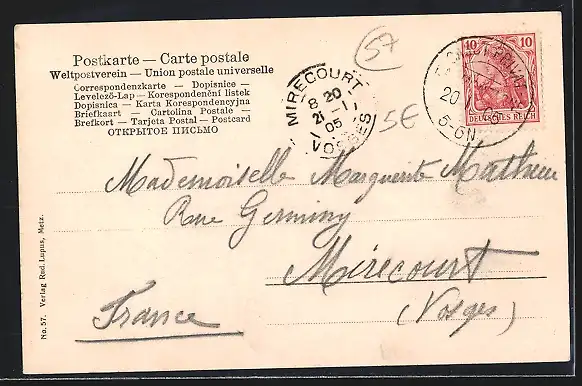 Postkarte — Carte postale
Weltpostverein — Union postale universelle
Correspondenzkarte — Dopisnice —
Levelező-Lap — Korespondenční lístek
Dopisnica — Karta Korespondencyjna
Briefkaart — Cartolina Postale —
Brefkort — Tarjeta Postal — Postcard
ОТКРЫТОЕ ПИСЬМО
57
5€
MIRECOURT
8 20
21 -1
05
VOSGES
10 10
DEUTSCHES REICH
20
5-6N
Mademoiselle Marguerite Mathieu
Rue Germiny
Mirecourt
(Vosges)
France
No. 57. Verlag Rud. Lupus, Metz.